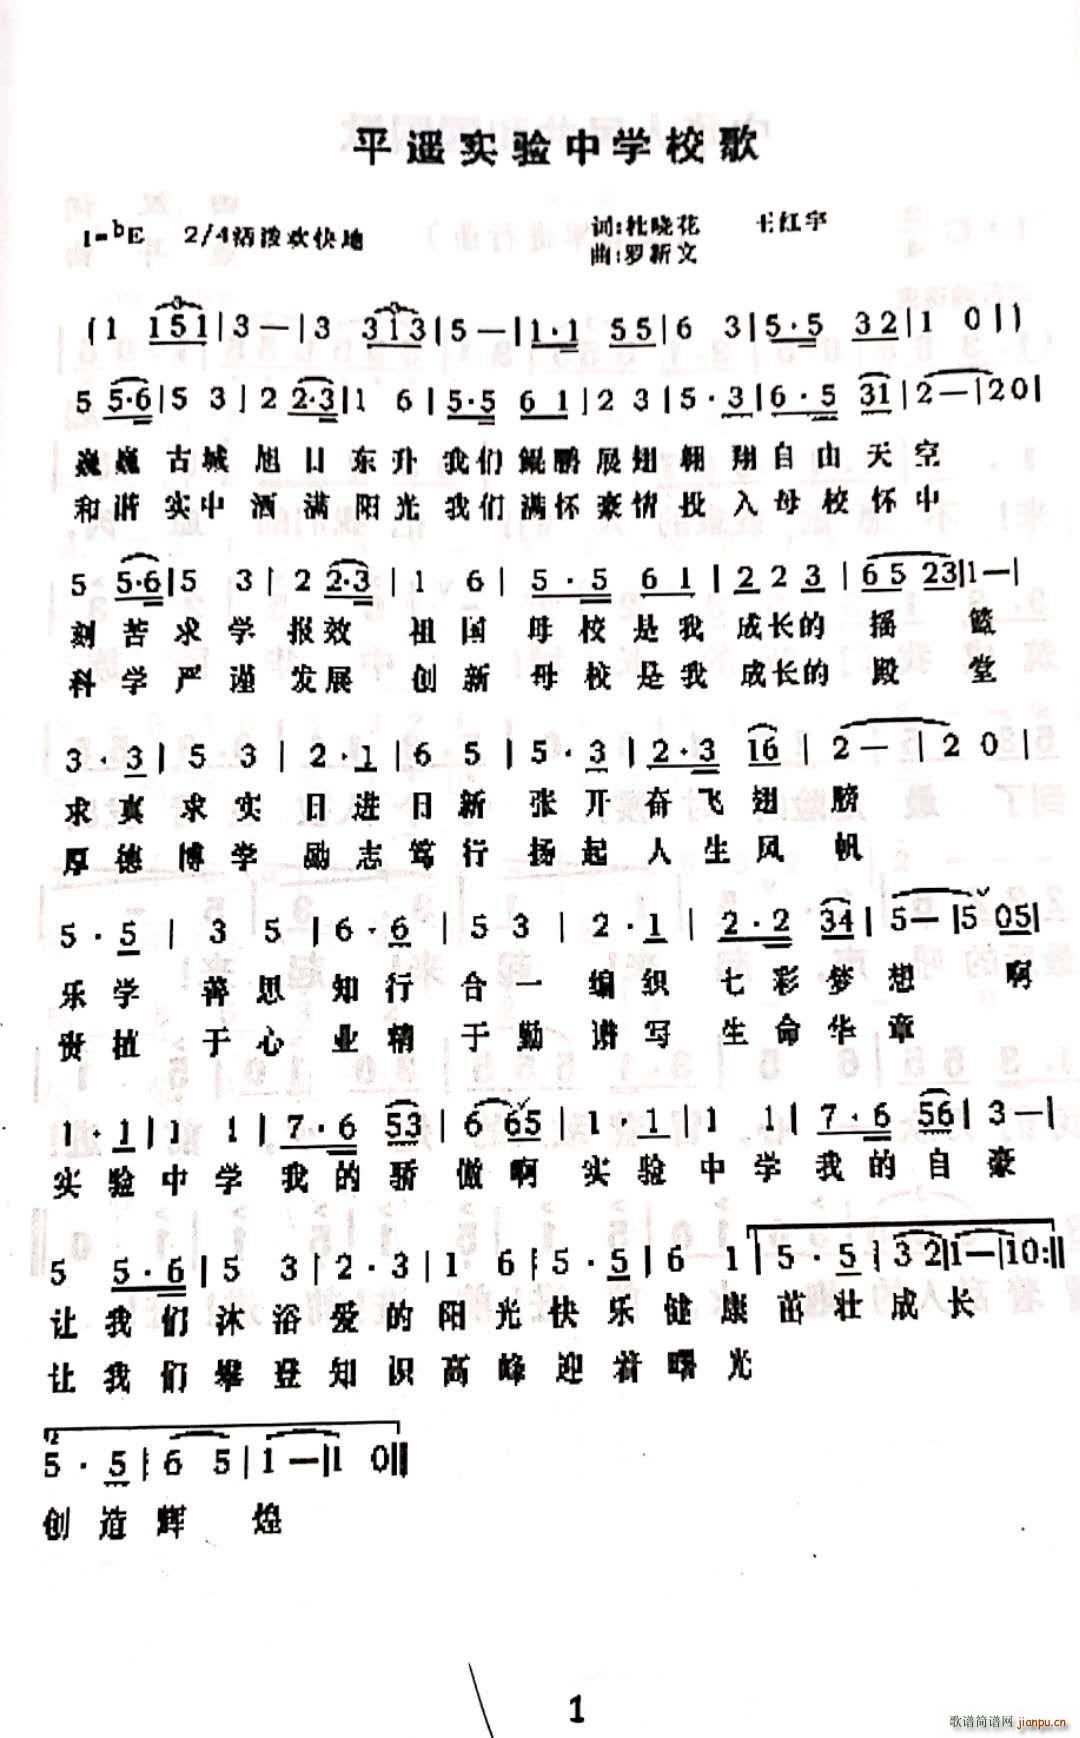 平遥实验中学校歌
1=bE 2/4 活泼欢快地 词:杜晓花 王红宇
曲:罗新文
(1 151|3—|3 313|5—|1·1 55|6 3|5·5 32|1 0||)
5 5·6|5 3|2 2·3|1 6|5·5 61|2 3|5·3|6·5 31|2—|20|
巍巍古城旭日东升我们鲲鹏展翅翱翔自由天空
和谐实中洒满阳光我们满怀豪情投入母校怀中
5 5·6|5 3|2 2·3|1 6|5·5 61|2 2 3|65 23|1—|
刻苦求学报效祖国母校是我成长的摇篮
科学严谨发展创新母校是我成长的殿堂
3·3|5 3|2·1|6 5|5·3|2·3 16|2—|2 0|
求真求实日进日新张开奋飞翅膀
厚德博学励志笃行扬起人生风帆
5·5|3 5|6·6|5 3|2·1|2·2 34|5—|5 05|
乐学善思知行合一编织七彩梦想啊
贵植于心业精于勤谱写生命华章
1·1|1 1|7·6 53|6 65|1·1|1 1|7·6 56|3—|
实验中学我的骄傲啊实验中学我的自豪
5 5·6|5 3|2·3|1 6|5·5|6 1|5·5|32|1—|10:||
让我们沐浴爱的阳光快乐健康茁壮成长
让我们攀登知识高峰迎着曙光
2
5·5|6 5|1—|1 0||
创造辉煌
1
歌谱简谱网 jianpu.cn